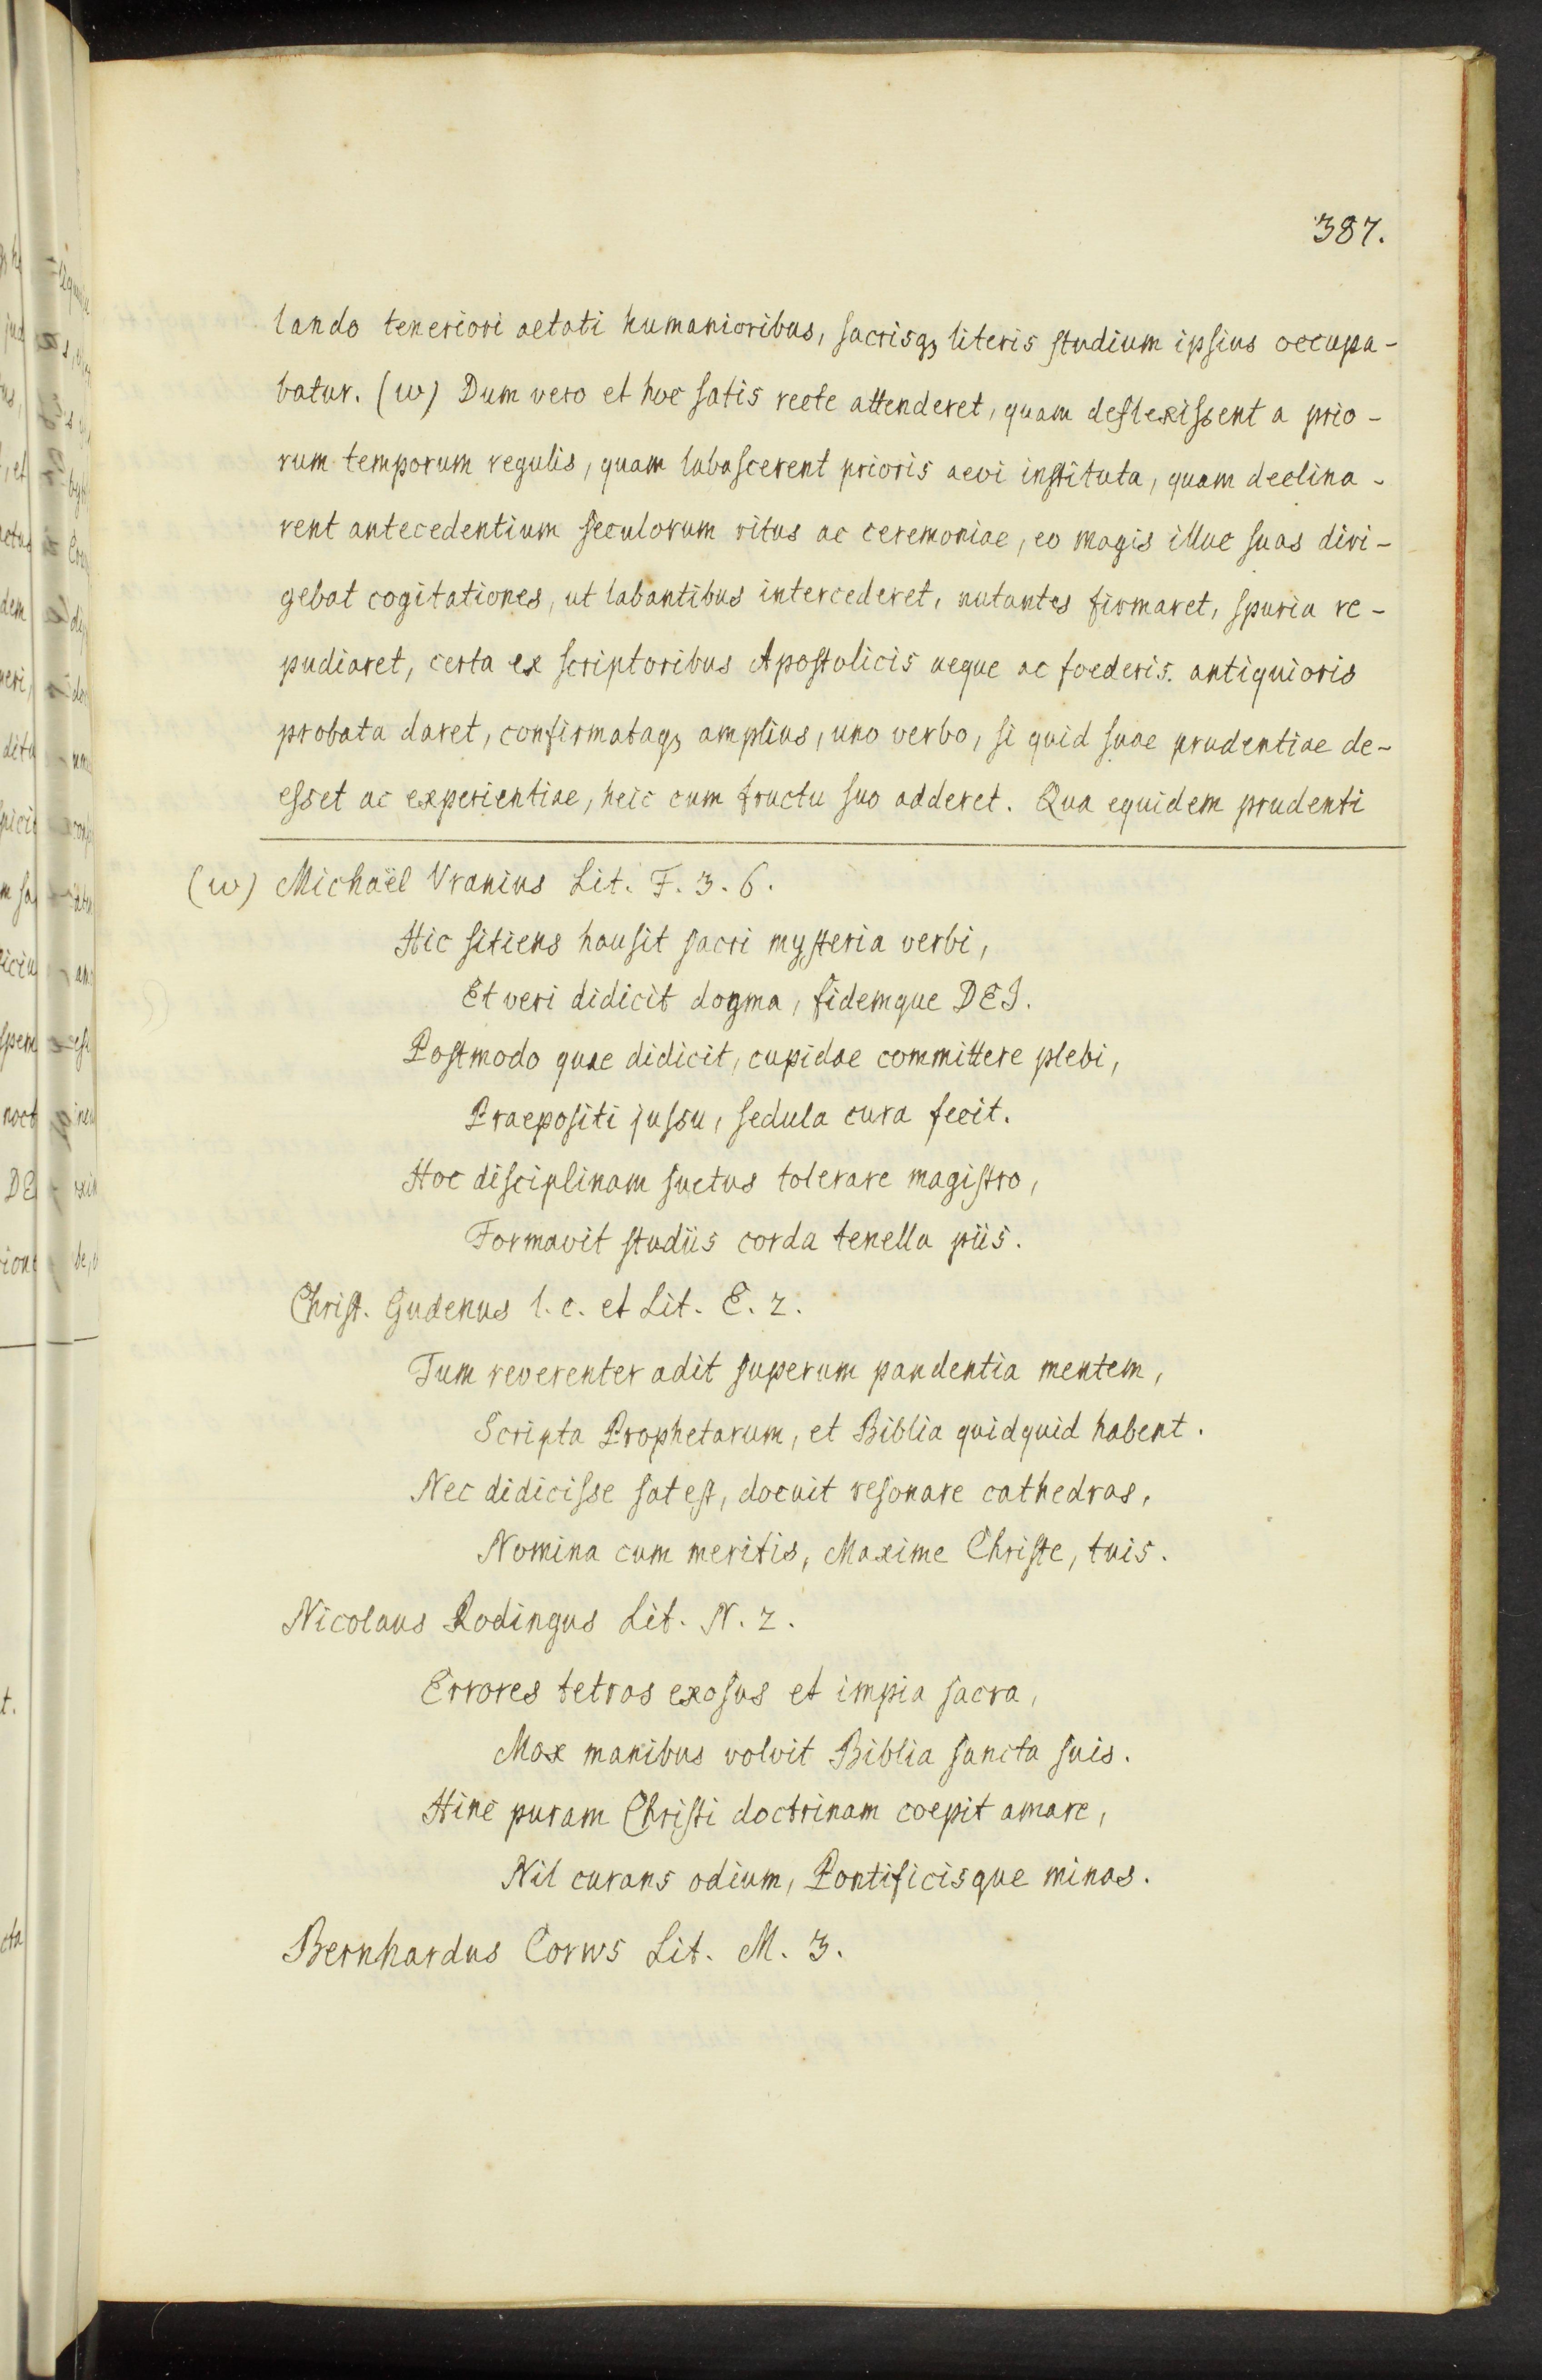 387.
lando teneriori aetati humanioribus, sacrisq₃ literis studium ipsius occupa-
batur. (w) Dum vero et hoc satis recte attenderet, quam deflexissent a prio-
rum temporum regulis, quam labascerent prioris aevi instituta, quam declina-
rent antecedentium seculorum ritus ac ceremoniae, eo magis illuc suas diri-
gebat cogitationes, ut labantibus intercederet, nutantes firmaret, spuria re-
pudiaret, certa ex scriptoribus Apostolicis aeque ac foederis. antiquioris
probata daret, confirmataq₃ amplius, uno verbo, si quid suae prudentiae de-
esset ac experientiae, heic cum fructu suo adderet. Qua equidem prudenti
(w) Michaël Vranius Lit. F. 3. 6.
Hic sitiens hausit sacri mysteria verbi,
Et veri didicit dogma, fidemque DEI.
Postmodo quae didicit, cupidae committere plebi,
Praepositi jussu, sedula cura fecit.
Hoc disciplinam suetus tolerare magistro,
Formavit studiis corda tenella piis.
Christ. Gudenus l. c. et Lit. E. 2.
Tum reverenter adit superum pandentia mentem,
Scripta Prophetarum, et Biblia quidquid habent.
Nec didicisse sat est, docuit resonare cathedras,
Nomina cum meritis, Maxime Christe, tuis.
Nicolaus Rodingus Lit. N. 2.
Errores tetros exosus et impia sacra,
Mox manibus volvit Biblia sancta suis.
Hinc puram Christi doctrinam coepit amare,
Nil curans odium, Pontificisque minas.
Bernhardus Corws Lit. M. 3.